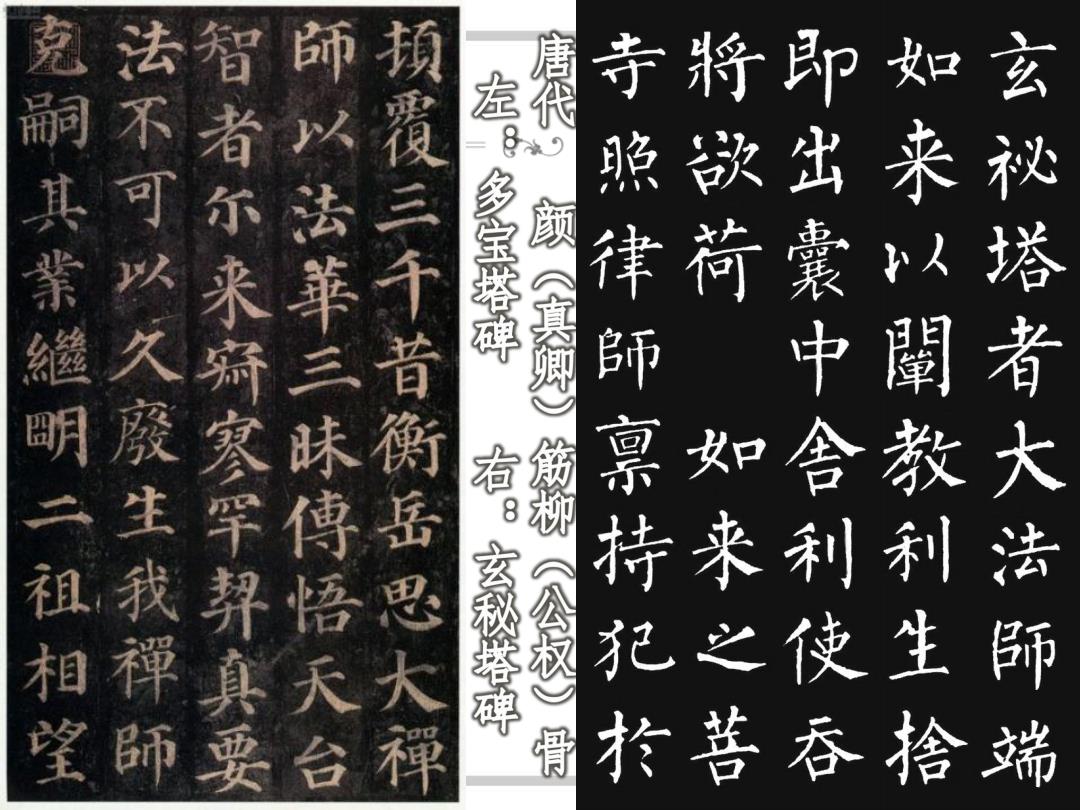 頂覆三千昔衡岳思大禪
師以法華三昧傳悟天台
智者尔来寂寥罕契真要
法不可以久廢生我禪師
克嗣其業繼明二祖相望
唐代 颜（真卿）筋柳（公权）骨
左：多宝塔碑 右：玄秘塔碑
玄祕塔者大法師端
如来以闡教利生捨
即出囊中舍利使吞
將欲荷 如来之菩
寺照律師禀持犯於